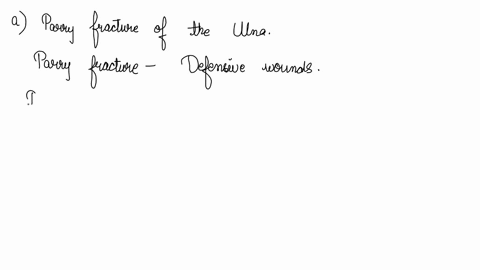 a) Parry fracture of the Ulna.
Parry fracture - Defensive wounds.